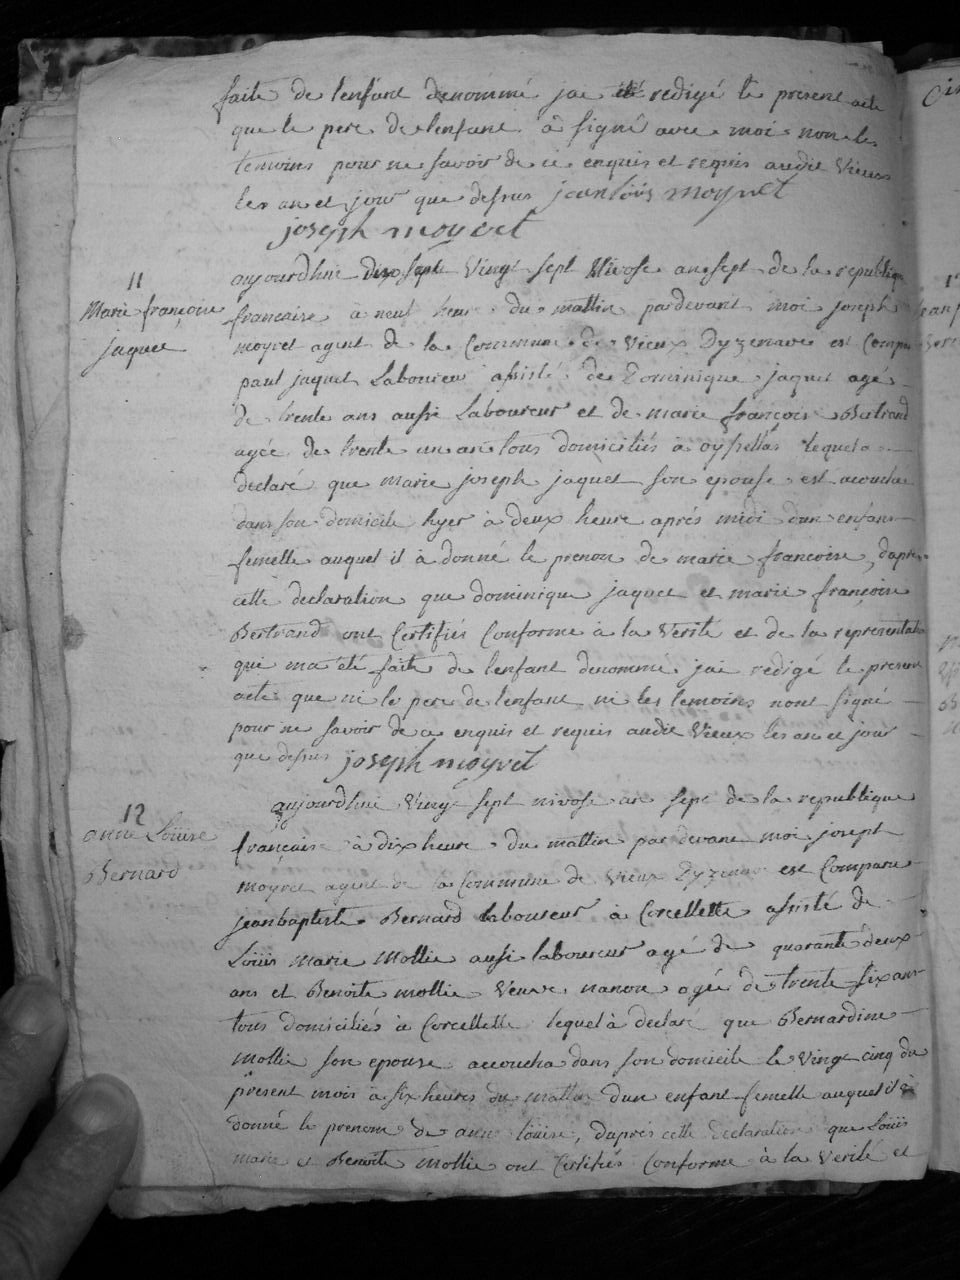 faite de lenfant denommé jae redigé le present acte
que le pere de lenfant à signé avec moi non les
temoins pour ne savoir de ce enquis et requis audit Vieux
les an et jour que dessus jean loüis moyret
joseph moyret
11
Marie françoise
jaquet
aujourdhui dix sept Vingt sept Nivose an sept de la republique
francaise à neuf heur du mattin pardevant moi joseph
moyret agent de la Commune de Vieux Dyzenave est Compar
paul jaquet Laboureur assisté de Dominique jaquet agé
de trente ans aussi Laboureur et de marie françoise Bertrand
agée de trente un an tous domiciliés à oyssellas lequel a
declaré que marie joseph jaquet son epouse est acouchée
dans son domicile hyer à deux heure aprés midi dun enfant
femelle auquel il à donné le prenom de marie francoise, dapres
cette declaration que dominique jaquet et marie françoise
Bertrand ont Certifiés Conforme à la Verité et de la representation
qui ma été faite de lenfant denommé jai redigé le present
acte que ni le pere de lenfant ni les temoins nont signé
pour ne savoir de ce enquis et requis audit Vieux les an et jour
que dessus joseph moyret
12
anne Loüise
Bernard
aujourdhui Vingt sept nivose an sept de la republique
française à dix heure du mattin par devant moi joseph
moyret agent de la Commune de Vieux Dyzenave est Comparu
jean baptiste Bernard laboureur à Corcellette assisté de
Loüis marie Mollie aussi laboureur agé de quarante deux
ans et Benoite mollie Veuve nanon agée de trente six ans
tous domiciliés à Corcellette lequel à declaré que Bernardine
mollie son epouse accoucha dans son domicile le Vingt cinq du
present mois à six heures du mattin dun enfant femelle auquel il à
donné le prenom de anne loüise, daprés cette declaration que Loüis
marie et Benoite mollie ont Certifiés Conforme à la Verité et